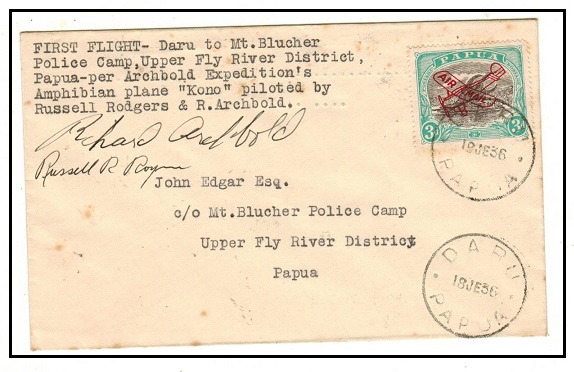 FIRST FLIGHT- Daru to Mt.Blucher
Police Camp,Upper Fly River District,
Papua-per Archbold Expedition's
Amphibian plane "Kono" piloted by
Russell Rodgers & R.Archbold.
Richard Archbold
Russell R
John Edgar Esq.
c/o Mt.Blucher Police Camp
Upper Fly River District
Papua
PAPUA
AIR MAIL
3d 3d
18JE36
PAPUA
DARU
18JE36
PAPUA